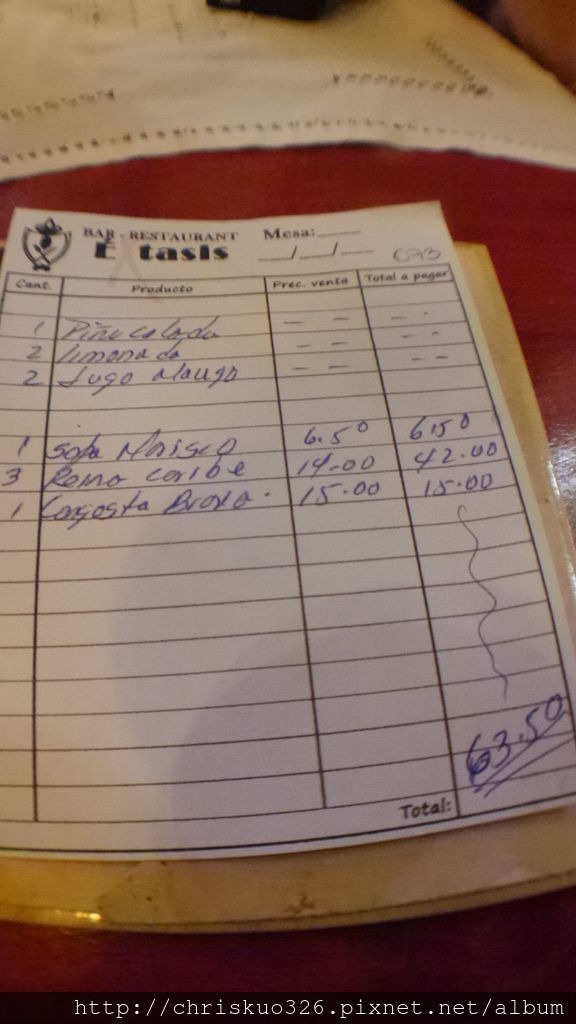 BAR - RESTAURANT Mesa:____
Extasis __/__/__ 073
Cant. Producto Prec. venta Total a pagar
1 Piña colada - - - -
2 limonada - - - -
2 Jugo Mango - - - -
1 Sopa Marisco 6.50 6.50
3 Reina Caribe 14.00 42.00
1 Langosta Brava. 15.00 15.00
63.50
Total:
http://chriskuo326.pixnet.net/album